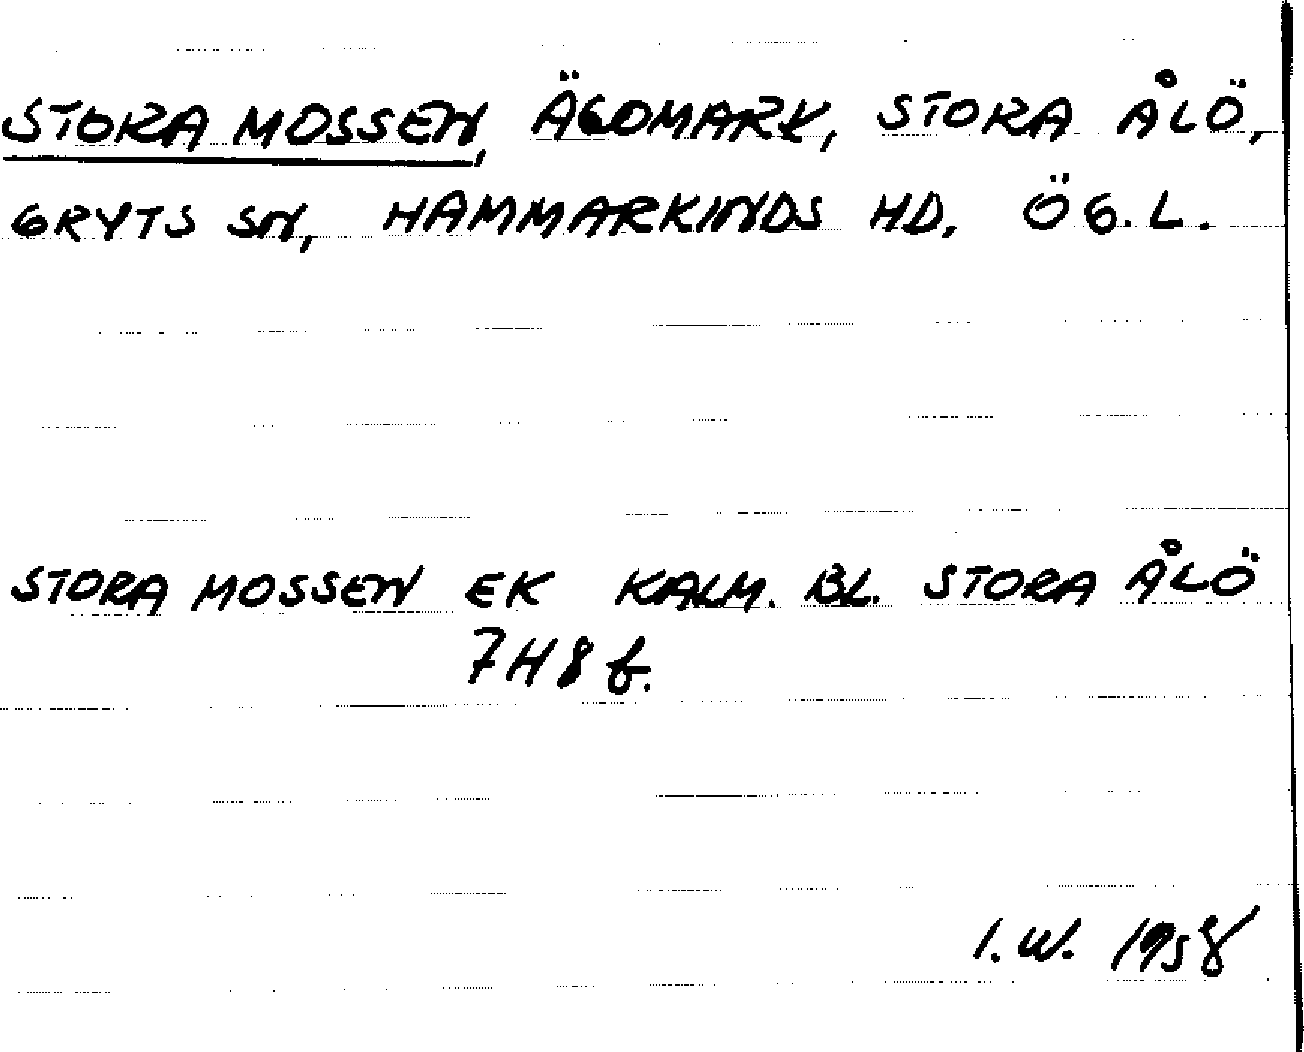 STORA MOSSEN, ÄGOMARK, STORA ÅLÖ,
GRYTS SN, HAMMARKINDS HD. ÖG.L.
STORA MOSSEN EK KALM. BL. STORA ÅLÖ
7H8f.
I.W. 1958